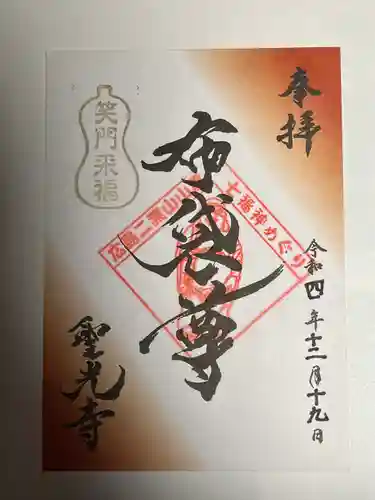 奉拝
令和四年十二月十九日
布袋尊
七福神めぐり
笑門来福
聖光寺